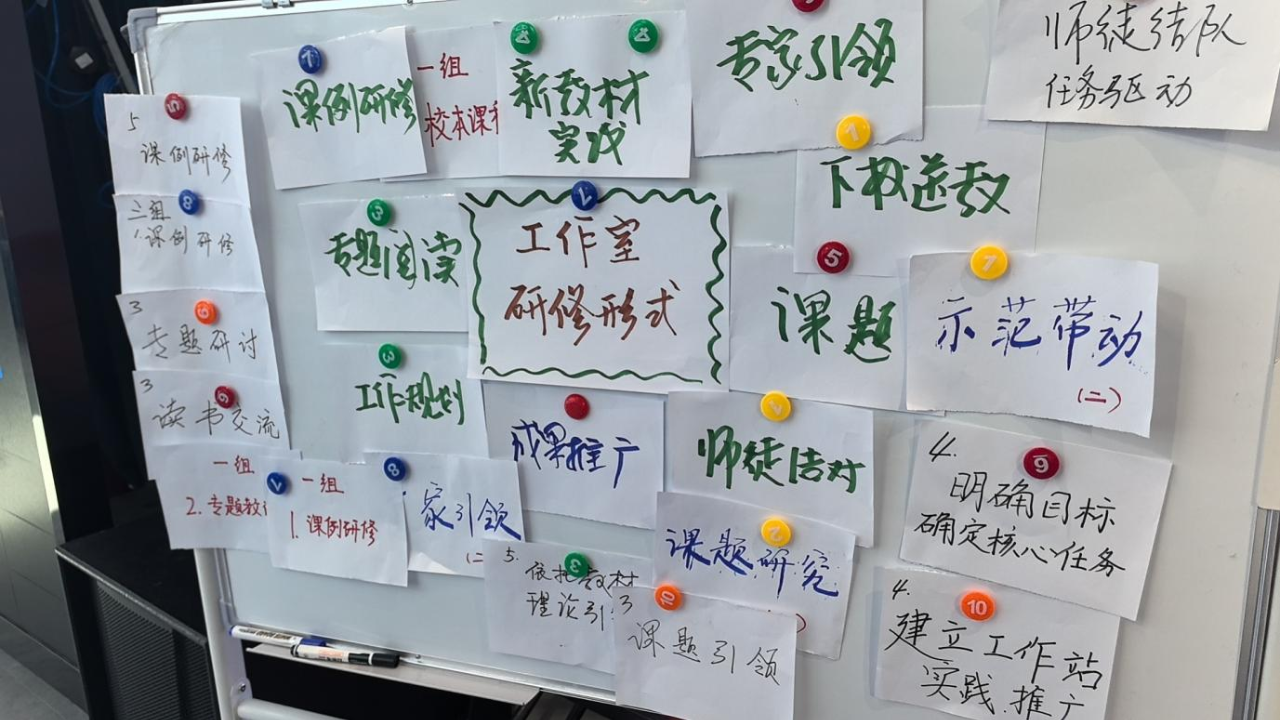 师徒结队
任务驱动
专家引领
新教材
实戏
一组
校本课程
课例研修
5
课例研修
下校送教
三组
1课例研修
专题阅读
工作室
研修形式
课题
示范带动
(二)
3
专题研讨
工作规划
3
读书交流
成果推广
师徒结对
4.
明确目标
确定核心任务
一组
2.专题教
一组
1.课例研修
家引领
(二
课题研究
5.
依托教材
理论引
课题引领
4.
建立工作站
实践推广